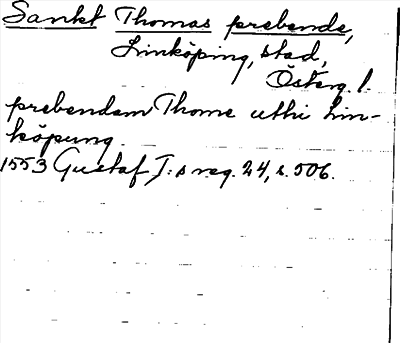 Sankt Thomas prebende,
Linköping, stad,
Österg. l.
prebendam Thome uthi Lin-
köpung.
1553 Gustaf I:s reg. 24, s. 506.